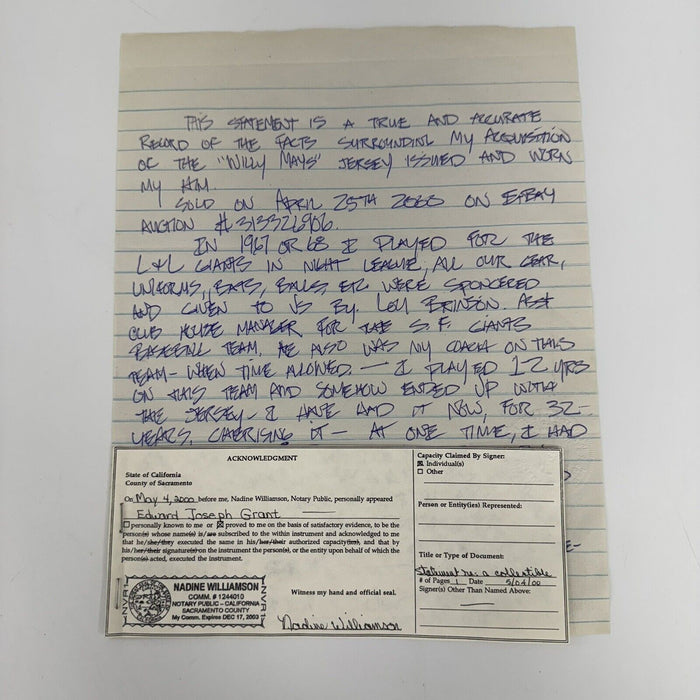 THIS STATEMENT IS A TRUE AND ACCURATE
RECORD OF THE FACTS SURROUNDING MY ACQUISITION
OF THE "WILLY MAYS" JERSEY ISSUED AND WORN
MY HIM.
SOLD ON APRIL 25TH 2000 ON E-BAY
AUCTION # 313326906.
IN 1967 OR 68 I PLAYED FOR THE
L&L GIANTS IN NIGHT LEAGUE, ALL OUR GEAR,
UNIFORMS, BATS, BALLS ETC WERE SPONCERED
AND GIVEN TO US BY LOU BRINSON. ASST
CLUB HOUSE MANAGER FOR THE S.F. GIANTS
BASEBALL TEAM. HE ALSO WAS MY COACH ON THIS
TEAM - WHEN TIME ALLOWED. — I PLAYED 12 YRS
ON THIS TEAM AND SOMEHOW ENDED UP WITH
THE JERSEY - I HAVE HAD IT NOW, FOR 32-
YEARS, CHERISING IT — AT ONE TIME, I HAD
ACKNOWLEDGMENT
State of California
County of Sacramento
On May 4, 2000 before me, Nadine Williamson, Notary Public, personally appeared
Edward Joseph Grant
☐ personally known to me or ☒ proved to me on the basis of satisfactory evidence, to be the
person(s) whose name(s) is/are subscribed to the within instrument and acknowledged to me
that he/she/they executed the same in his/her/their authorized capacity(ies), and that by
his/her/their signature(s) on the instrument the person(s), or the entity upon behalf of which the
person(s) acted, executed the instrument.
NADINE WILLIAMSON
COMM. # 1244010
NOTARY PUBLIC - CALIFORNIA
SACRAMENTO COUNTY
My Comm. Expires DEC 17, 2003
Witness my hand and official seal.
Nadine Williamson
Capacity Claimed By Signer:
☒ Individual(s)
☐ Other
Person or Entity(ies) Represented:
Title or Type of Document:
Statement re: a collectible
# of Pages 1 Date 5/04/00
Signer(s) Other Than Named Above: